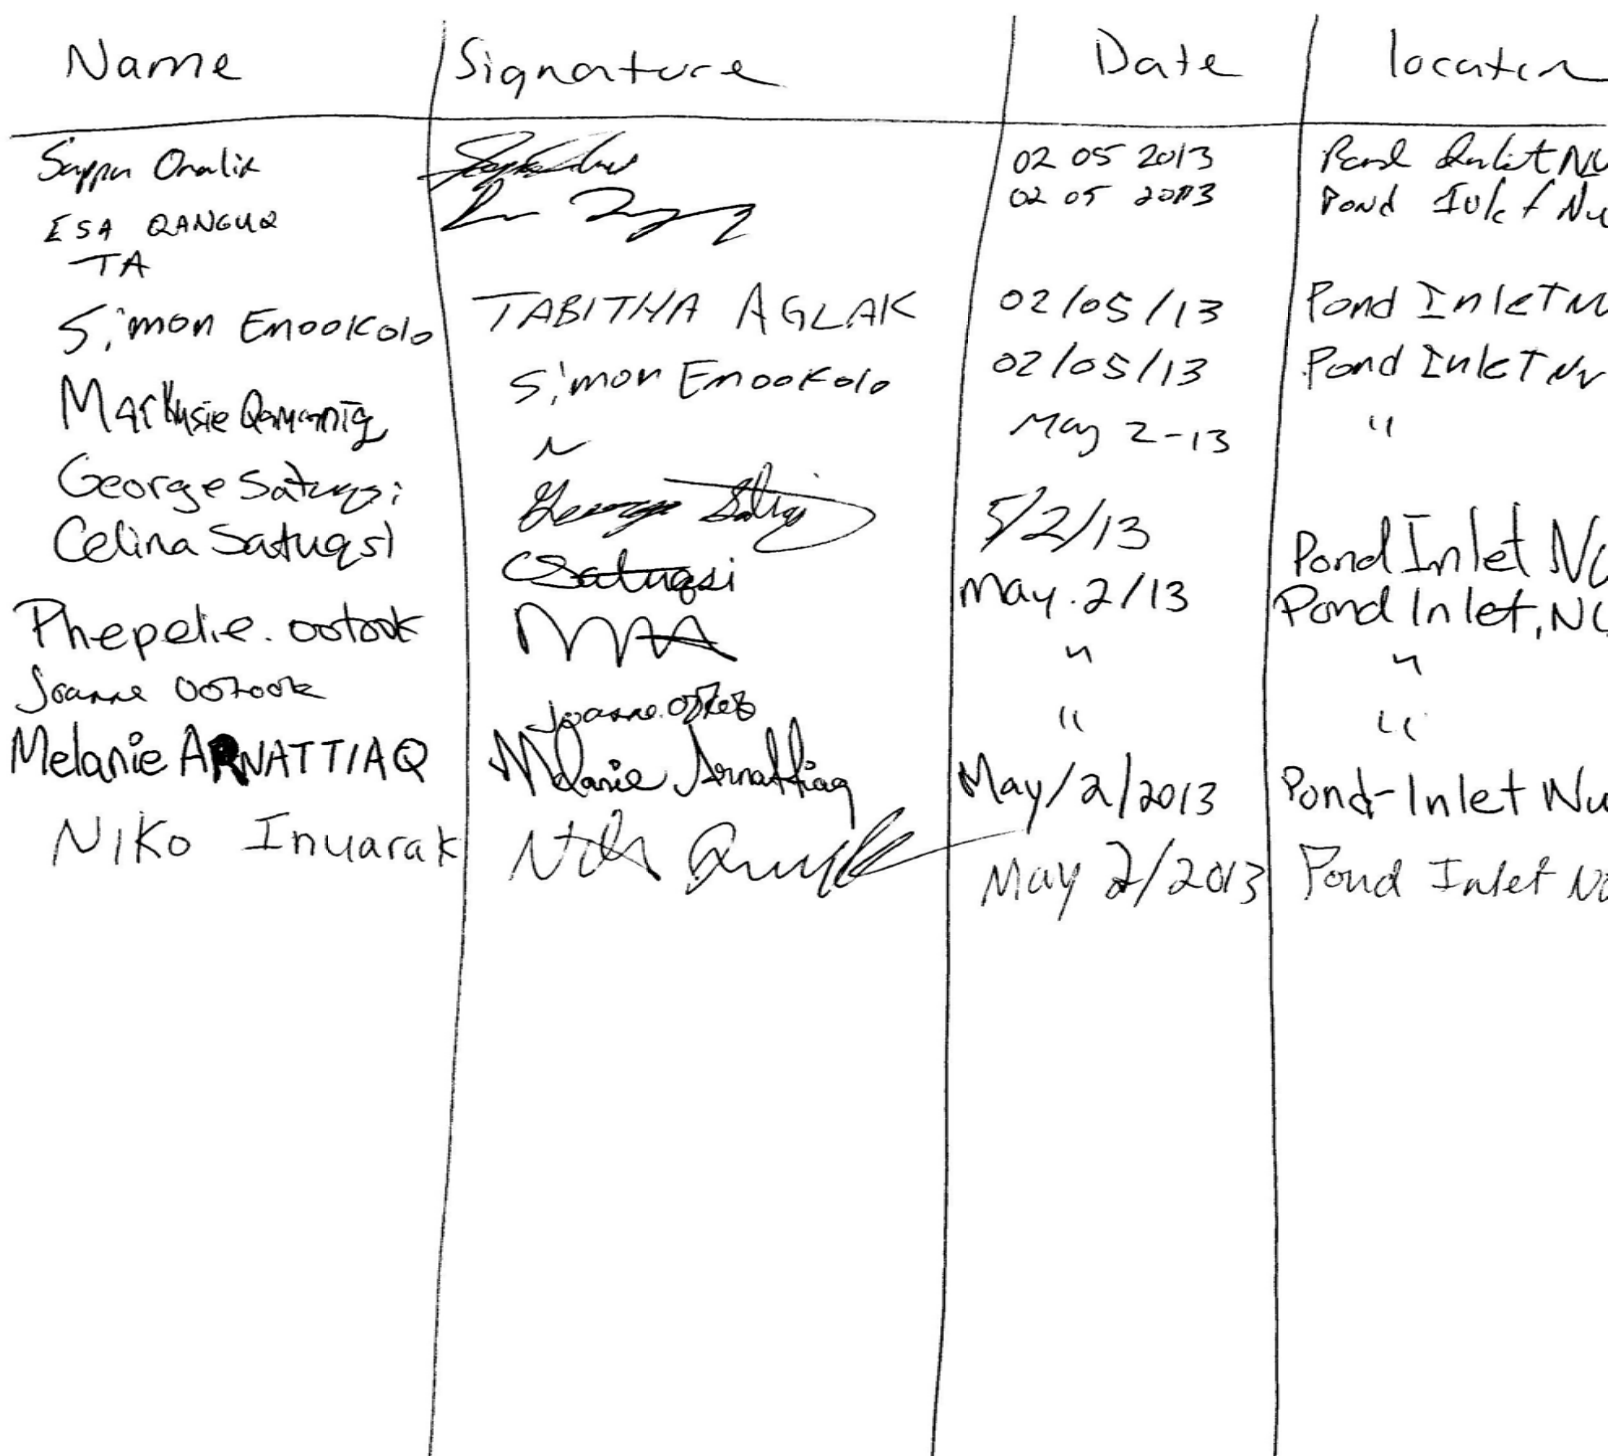 Name Signature Date location
Onalik 02 05 2013 Pond Inlet NU
ESA QANGUQ 02 05 2013 Pond Inlet Nu
TA TABITHA AGLAK 02/05/13 Pond Inlet NU
Simon Enookolo Simon Enookolo 02/05/13 Pond Inlet NU
Markusie Qamaniq " May 2-13 "
George Satuqsi George Satuqsi 5/2/13 Pond Inlet NU
Celina Satuqsi CSatuqsi May.2/13 Pond Inlet, NU
Phepelie.ootook " "
Joanne ootook Joanne " "
Melanie ARNATTIAQ Melanie Arnattiaq May/2/2013 Pond-Inlet Nu
Niko Inuarak May 2/2013 Pond Inlet NU